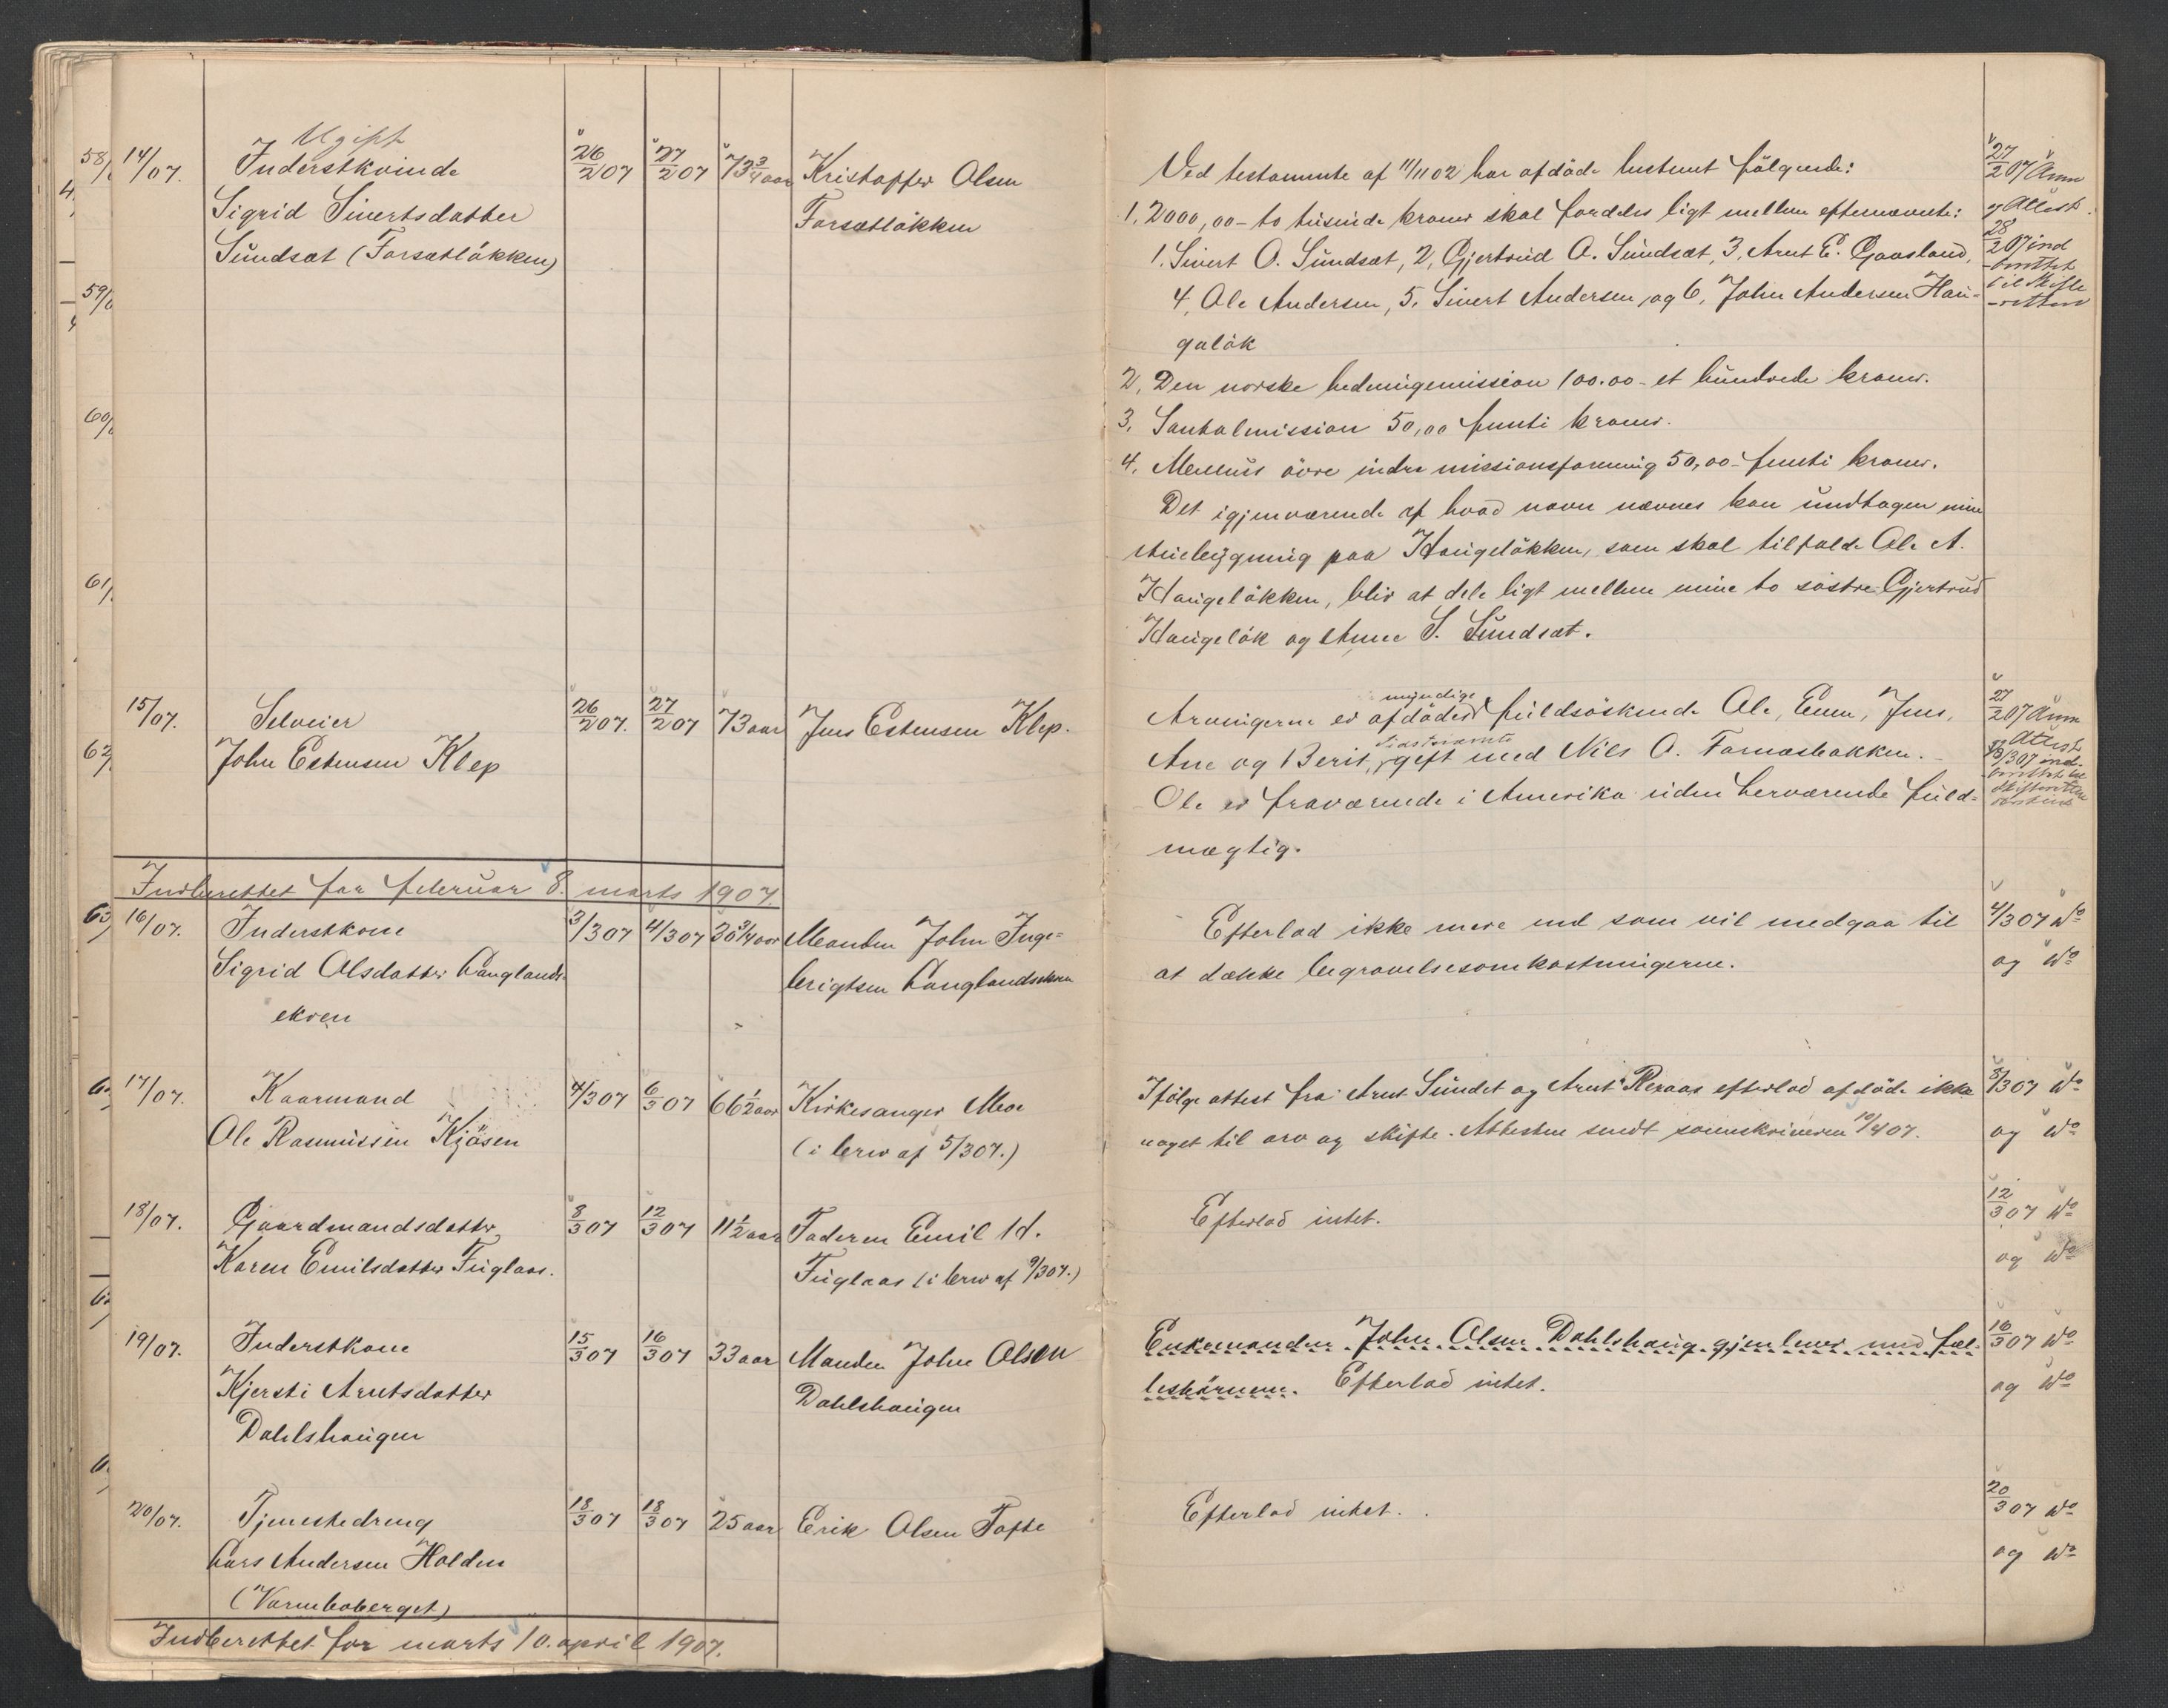 14/07.
Ugift
Inderstkvinde
Sigrid Sivertsdatter
Sundsæt (Forsætløkken)
26/2 07
27/2 07
73 3/4 aar
Kristoffer Olsen
Forsætløkken
Ved testamente af 11/11 02 har afdøde bestemt følgende:
1, 2000,00 - to tusinde kroner skal fordeles ligt mellem efternævnte:
1. Sivert O. Sundsæt, 2, Gjertrud O. Sundsæt, 3, Arnt E. Gaasland,
4, Ole Andersen, 5, Sivert Andersen, og 6, John Andersen Hau-
geløk
2, Den norske hedningemission 100.00 - et hundrede kroner.
3, Santalmission 50,00 femti kroner.
4, Melhus øvre indre missionsforening 50,00 - femti kroner.
Det igjenværende af hvad navn nævnes kan undtagen min
stuebygning paa Haugeløkken, som skal tilfalde Ole A.
Haugeløkken, blir at dele ligt mellem mine to søstre Gjertrud
Haugeløk og Anne S. Sundsæt.
27/2 07 Anm
og Attest.
28/2 07 ind
-berettet
til skifte
-retten
15/07.
Selveier
John Estensen Klep
26/2 07.
27/2 07
73 aar
Jens Estensen Klep.
Arvingerne er afdødes myndige fuldsøskende Ole, Even, Jens,
Ane og Berit, sidstnævnte gift med Nils O. Fornæsbakken.
Ole er fraværende i Amerika uden herværende fuld-
mægtig.
27/2 07 Anm
og Attest
Indberettet for februar 8. marts 1907.
16/07.
Inderstkone
Sigrid Olsdatter Langlands-
ekren
3/3 07
4/3 07
30 3/4 aar
Manden John Inge-
brigtsen Langlandsekren
Efterlod ikke mere end som vil medgaa til
at dække begravelsesomkostningerne.
4/3 07 do
og do
17/07.
Kaarmand
Ole Rasmussen Kjøsen
4/3 07
6/3 07
66 1/2 aar
Kirkesanger Moe
(i brev af 5/3 07.)
Ifølge attest fra Arnt Sundet og Arnt Reraas efterlod afdøde ikke
noget til arv og skifte. Attesten sendt sorenskriveren 10/4 07.
8/3 07 do
og do
18/07.
Gaardmandsdatter
Karen Emilsdatter Fuglaas.
8/3 07
12/3 07
11 1/2 aar
Faderen Emil H.
Fuglaas (i brev af 9/3 07.)
Efterlod intet.
12/3 07 do
og do
19/07.
Inderstkone
Kjersti Arntsdatter
Dahlshaugen
15/3 07
16/3 07
33 aar
Manden John Olsen
Dahlshaugen
Enkemanden John Olsen Dahlshaug gjenlever med fæl-
lesbørnene. Efterlod intet.
16/3 07 do
og do
20/07.
Tjenestedreng
Lars Andersen Holden
(Varmboberget)
18/3 07
18/3 07
25 aar
Erik Olsen Tofte
Efterlod intet.
20/3 07 do
og do
Indberettet for marts 10. april 1907.